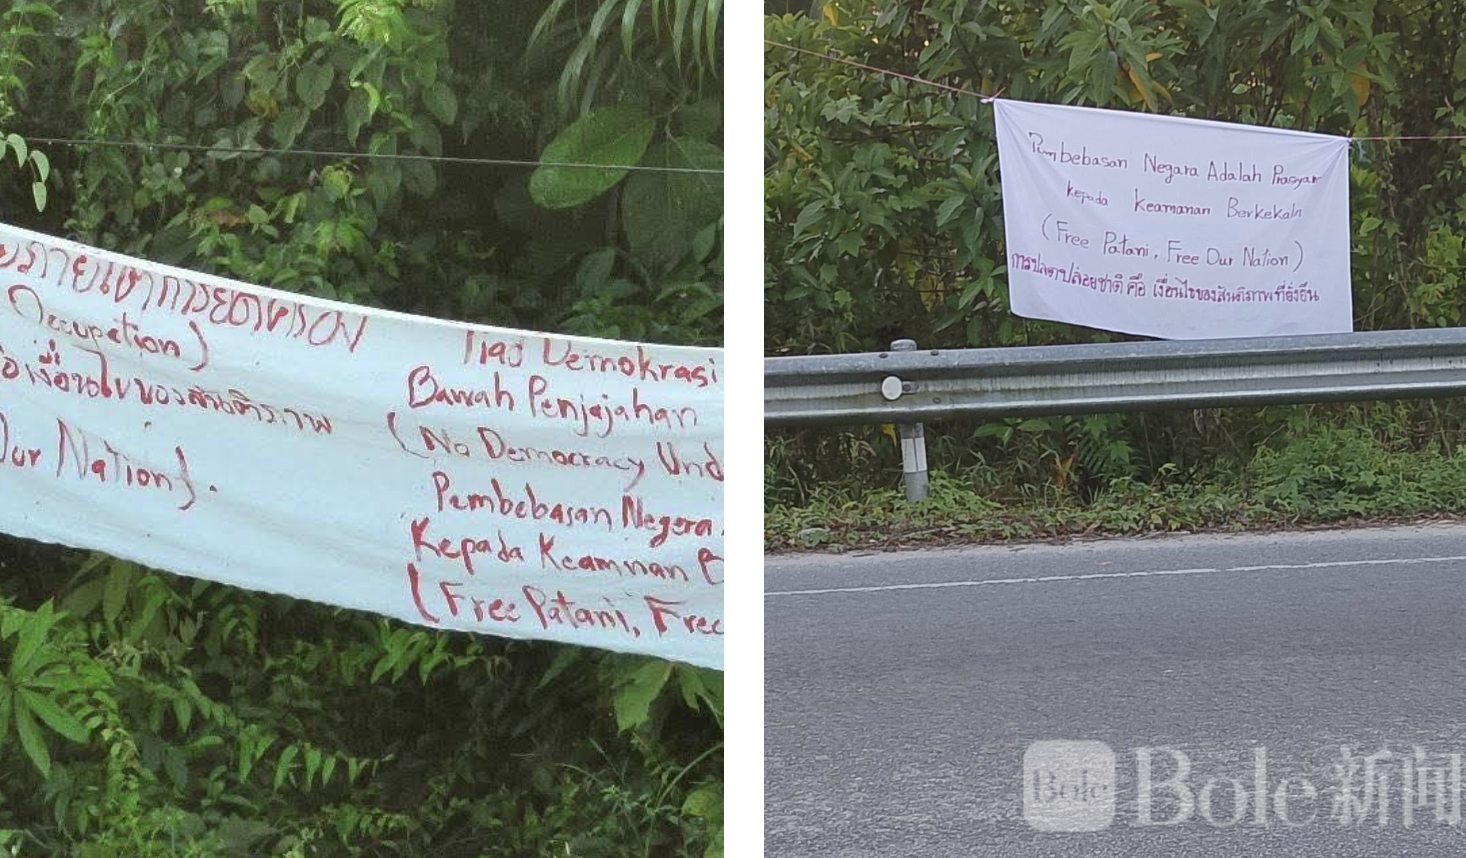 ภายใต้การยึดครอง
Occupation)
คือเงื่อนไขของสันติภาพ
Our Nation).
Tiad Demokrasi
Bawah Penjajahan
(No Democracy Und
Pembebasan Negara
Kepada Keamnan B
(Free Patani, Free
Pembebasan Negara Adalah Prasyar
kepada Keamanan Berkekaln
(Free Patani, Free Our Nation)
การปลดปล่อยชาติ คือ เงื่อนไขของสันติภาพที่ยั่งยืน
Bole
Bole新闻